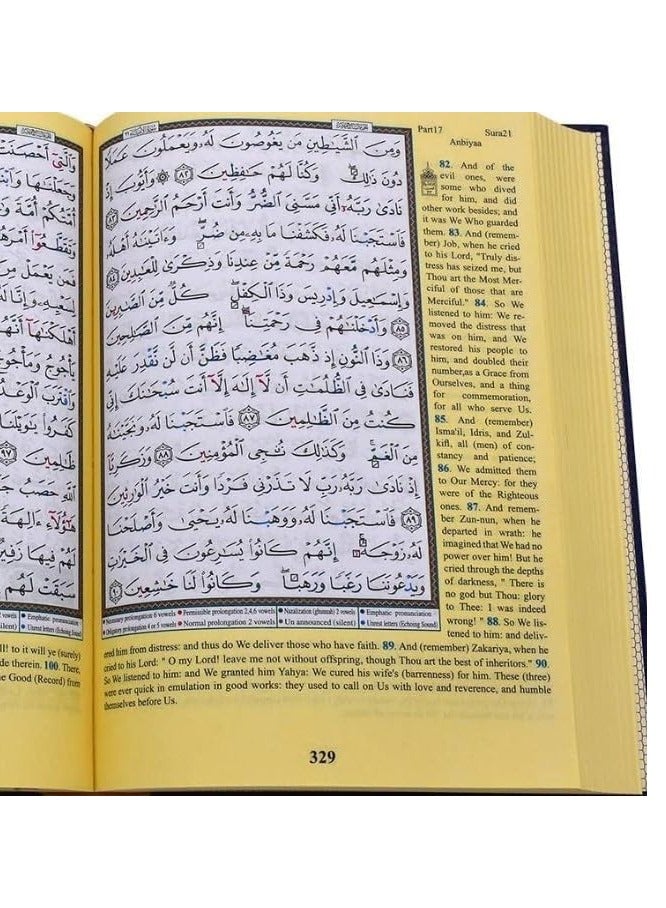 Part17 Sura21
Anbiyaa
وَمِنَ الشَّيَاطِينِ مَن يَغُوصُونَ لَهُ وَيَعْمَلُونَ عَمَلًا
دُونَ ذَٰلِكَ وَكُنَّا لَهُمْ حَافِظِينَ ٨٢ ۞ وَأَيُّوبَ إِذْ
نَادَىٰ رَبَّهُ أَنِّي مَسَّنِيَ الضُّرُّ وَأَنتَ أَرْحَمُ الرَّاحِمِينَ ٨٣
فَاسْتَجَبْنَا لَهُ فَكَشَفْنَا مَا بِهِ مِن ضُرٍّ وَآتَيْنَاهُ أَهْلَهُ
وَمِثْلَهُم مَّعَهُمْ رَحْمَةً مِّنْ عِندِنَا وَذِكْرَىٰ لِلْعَابِدِينَ ٨٤
وَإِسْمَاعِيلَ وَإِدْرِيسَ وَذَا الْكِفْلِ كُلٌّ مِّنَ الصَّابِرِينَ
٨٥ وَأَدْخَلْنَاهُمْ فِي رَحْمَتِنَا إِنَّهُم مِّنَ الصَّالِحِينَ
٨٦ وَذَا النُّونِ إِذ ذَّهَبَ مُغَاضِبًا فَظَنَّ أَن لَّن نَّقْدِرَ عَلَيْهِ
فَنَادَىٰ فِي الظُّلُمَاتِ أَن لَّا إِلَٰهَ إِلَّا أَنتَ سُبْحَانَكَ إِنِّي
كُنتُ مِنَ الظَّالِمِينَ ٨٧ فَاسْتَجَبْنَا لَهُ وَنَجَّيْنَاهُ
مِنَ الْغَمِّ وَكَذَٰلِكَ نُنجِي الْمُؤْمِنِينَ ٨٨ وَزَكَرِيَّا
إِذْ نَادَىٰ رَبَّهُ رَبِّ لَا تَذَرْنِي فَرْدًا وَأَنتَ خَيْرُ الْوَارِثِينَ
٨٩ فَاسْتَجَبْنَا لَهُ وَوَهَبْنَا لَهُ يَحْيَىٰ وَأَصْلَحْنَا
لَهُ زَوْجَهُ إِنَّهُمْ كَانُوا يُسَارِعُونَ فِي الْخَيْرَاتِ
وَيَدْعُونَنَا رَغَبًا وَرَهَبًا وَكَانُوا لَنَا خَاشِعِينَ ٩٠
Necessary prolongation 6 vowels Permissible prolongation 2,4,6 vowels Nazalization (ghunnah) 2 vowels Emphatic pronunciation
Obligatory prolongation 4 or 5 vowels Normal prolongation 2 vowels Un announced (silent) Unrest letters (Echoing Sound)
82. And of the
evil ones, were
some who dived
for him, and did
other work besides; and
it was We Who guarded
them. 83. And (remem-
ber) Job, when he cried
to his Lord, "Truly dis-
tress has seized me, but
Thou art the Most Mer-
ciful of those that are
Merciful." 84. So We
listened to him: We re-
moved the distress that
was on him, and We
restored his people to
him, and doubled their
number,as a Grace from
Ourselves, and a thing
for commemoration,
for all who serve Us.
85. And (remember)
Isma'il, Idris, and Zul-
kifl, all (men) of con-
stancy and patience;
86. We admitted them
to Our Mercy: for they
were of the Righteous
ones. 87. And remem-
ber Zun-nun, when he
departed in wrath: he
imagined that We had no
power over him! But he
cried through the depths
of darkness, " There is
no god but Thou: glory
to Thee: I was indeed
wrong! " 88. So We lis-
tened to him: and deliv-
ered him from distress: and thus do We deliver those who have faith. 89. And (remember) Zakariya, when he
cried to his Lord: " O my Lord! leave me not without offspring, though Thou art the best of inheritors." 90.
So We listened to him: and We granted him Yahya: We cured his wife's (barrenness) for him. These (three)
were ever quick in emulation in good works: they used to call on Us with love and reverence, and humble
themselves before Us.
329
وَالَّتِي أَحْصَنَتْ
وَجَعَلْنَاهَا وَابْنَهَا
أُمَّتُكُمْ أُمَّةً
وَتَقَطَّعُوا أَمْرَهُم
فَمَن يَعْمَلْ مِنَ
لِسَعْيِهِ وَإِنَّا لَهُ
أَهْلَكْنَاهَا أَنَّهُمْ
يَأْجُوجُ وَمَأْجُوجُ
وَاقْتَرَبَ الْوَعْدُ
كَفَرُوا يَا وَيْلَنَا
ظَالِمِينَ ٩٧
اللَّهِ حَصَبُ
هَٰؤُلَاءِ آلِهَةً
لَهُمْ فِيهَا زَفِيرٌ
سَبَقَتْ لَهُم
2 vowels Emphatic pronunciation
(silent) Unrest letters (Echoing Sound)
ll! to it will ye (surely)
de therein. 100. There,
he Good (Record) from